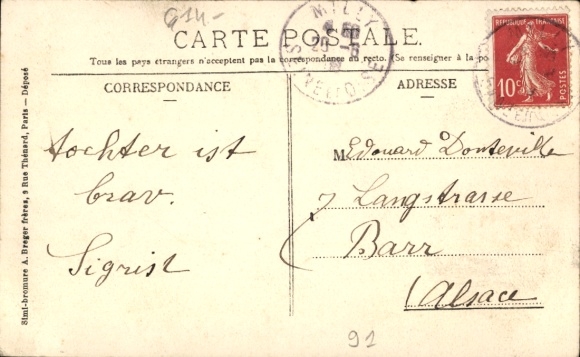 614.-
CARTE POSTALE.
Tous les pays étrangers n'acceptent pas la correspondance au recto. (Se renseigner à la po
CORRESPONDANCE
ADRESSE
MILLY
SEINE-ET-OISE
REPUBLIQUE FRANÇAISE
10c
POSTES
tochter ist
brav.
Sigrist
M. Edouard Donteville
7 Langstrasse
Barr
Alsace
91
Simi-bromure A. Breger frères, 9 Rue Thénard, Paris — Déposé